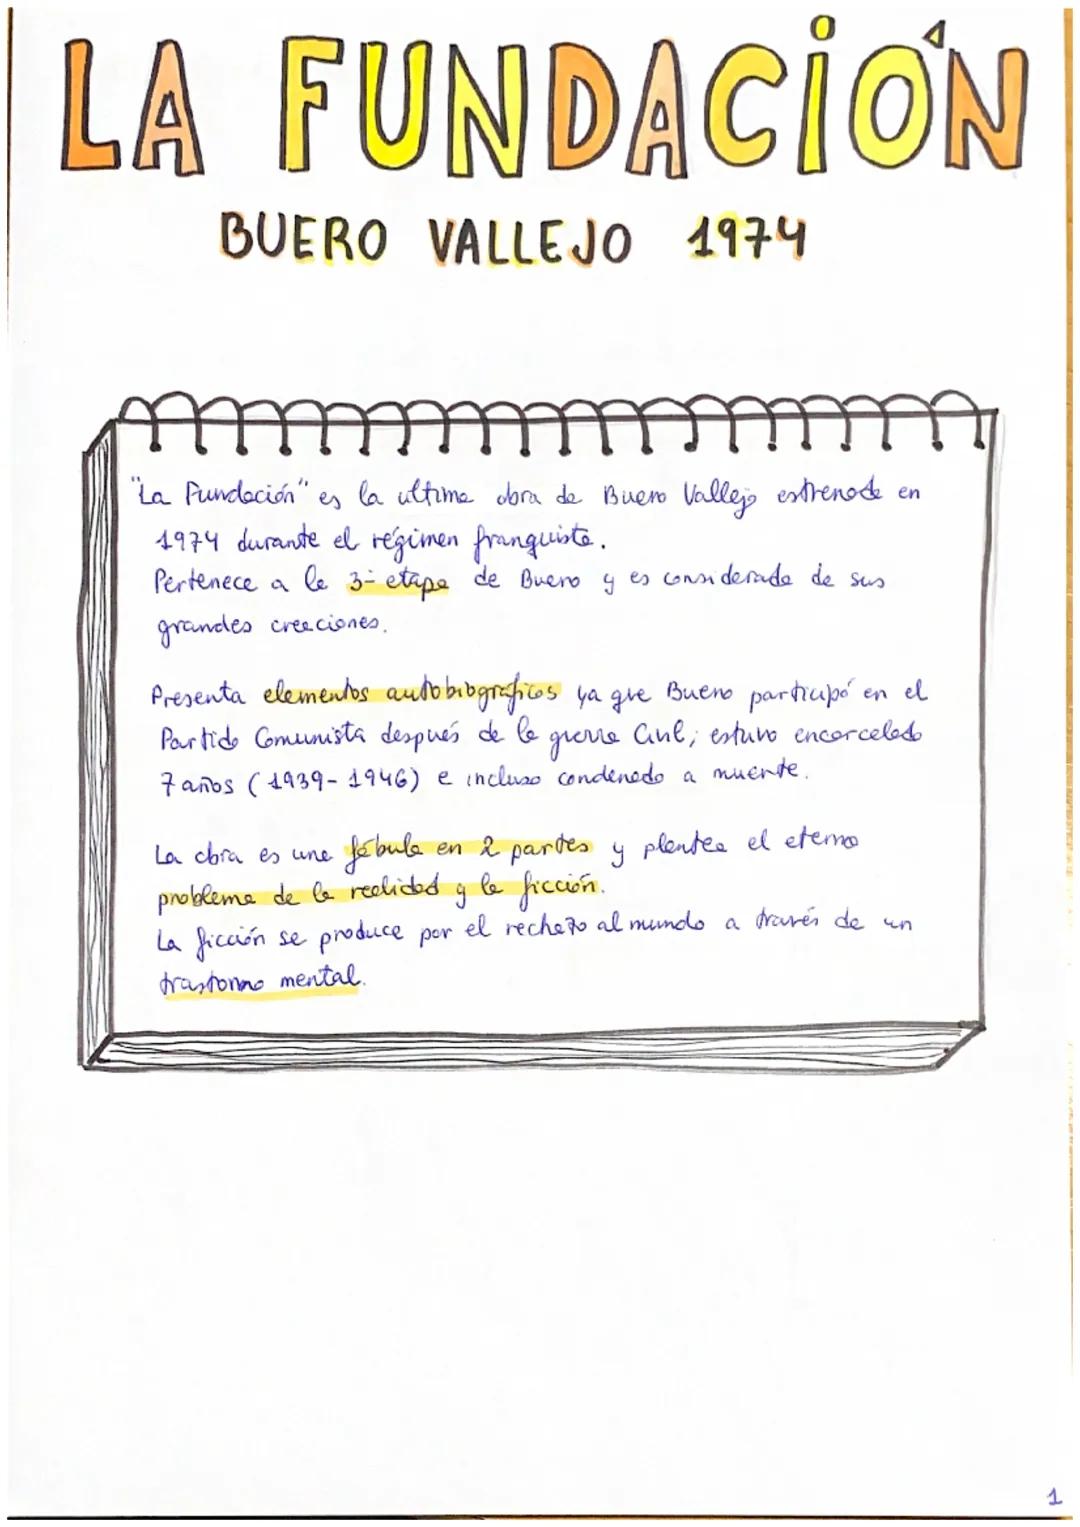 LA FUNDACIÓN
BUERO VALLEJO 1974
"La Fundación" es la ultima obra de Buero Vallejo estrenada en
1974 durante el régimen franquista.
Pertenece a la 3ª etapa de Buero y es considerada de sus
grandes creaciones.
Presenta elementos autobiográficos ya que Buero participó en el
Partido Comunista después de la guerra Civil; estuvo encarcelado
7 años (1939-1946) e incluso condenado a muerte.
La obra es una fábula en 2 partes y plantea el eterno
problema de la realidad y la ficción.
La ficción se produce por el rechazo al mundo a través de un
trastorno mental.
1